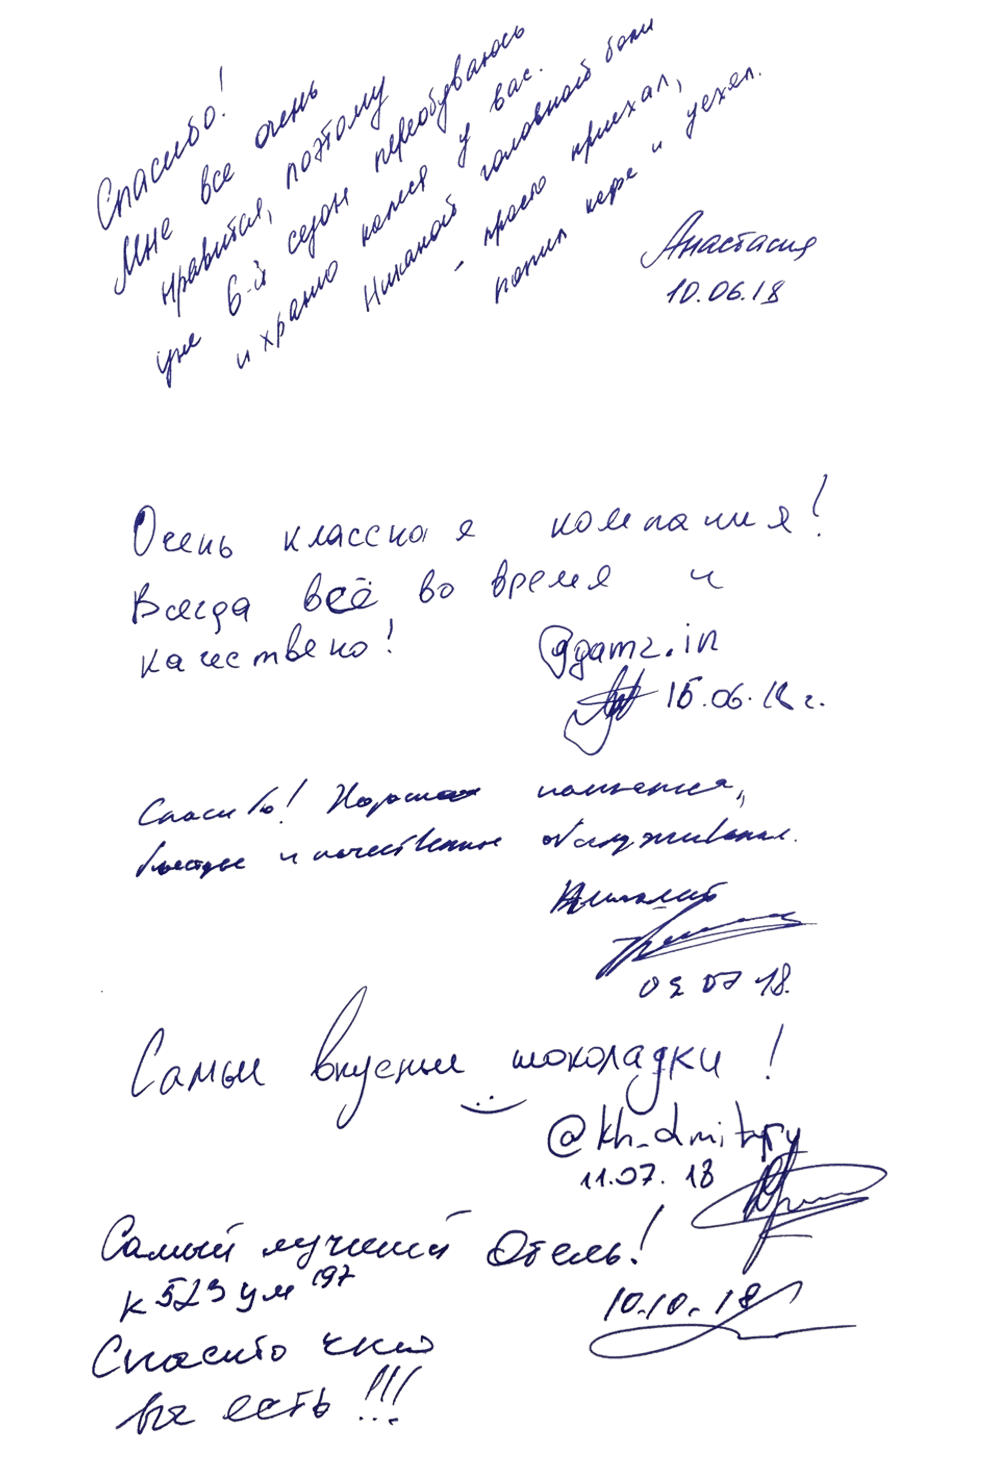 Спасибо!
Мне все очень
нравится, поэтому
уже 6-й сезон переобуваюсь
и храню колеса у вас.
Никакой головной боли
- просто приехал,
попил кофе и уехал.
Анастасия
10.06.18
Очень классная компания!
Всегда всё во время и
качествено!
@gamz.in
15.06.18 г.
Спасибо! Хорошая компания,
быстрое и качественное обслуживание.
Виталий
09 07 18.
Самые вкусные шоколадки!
@kh_dmitry
11.07.18
Самый лучший Отель!
к 523 ум 197
10.10.18
Спасибо что
вы есть!!!